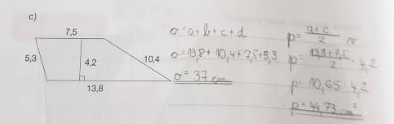 c)
7,5
5,3
4,2
10,4
13,8
σ = a+b+c+d
σ = 13,8 + 10,4 + 7,5 + 5,3
σ = 37 cm
p = a+c / 2 · v
p = 13,8+7,5 / 2 · 4,2
p = 10,65 · 4,2
p = 44,73 cm²